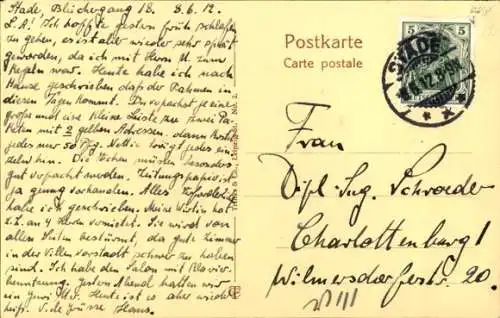 Stade, Bleichergang 18. 8.6.12.
L.A! Ich hoffte gestern früh schlafen
zu gehen, es ist aber wieder sehr spät
geworden, da ich mit Herrn U. zum
Kegeln war. Heute habe ich nach
Hause geschrieben daß der Rahmen in
diesen Tagen kommt. Du verpackst ja eine
große und eine kleine Kiste zu zwei Pa-
keten mit 2 gelben Adressen. dann kostet
jedes nur 50 Pfg.
Die Ecken müssen besonders
gut verpackt werden. Zeitungspapier ist
ja genug vorhanden. Alles
habe ich geschrieben. Meine Wirtin hat
z.Z. an 4 Herren vermietet. Sie wird von
allen Seiten bestürmt, da gute Zimmer
in der Villenvorstadt schwer zu haben
sind. Ich habe den Salon mit Klavier-
benutzung. Gestern Abend hatten wir
ein Heute ist es aber wieder
heiß. V. Grüsse Hans.
Postkarte
Carte postale
5 5
STADE
8.6.12.
Frau
Dipl. Ing. Schroeder
Charlottenburg 1
Wilmersdorferstr. 20.